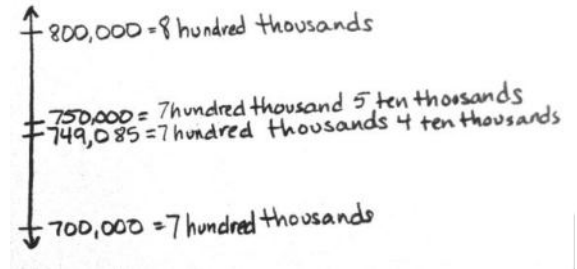 800,000 = 8 hundred thousands
750,000 = 7 hundred thousand 5 ten thousands
749,085 = 7 hundred thousands 4 ten thousands
700,000 = 7 hundred thousands